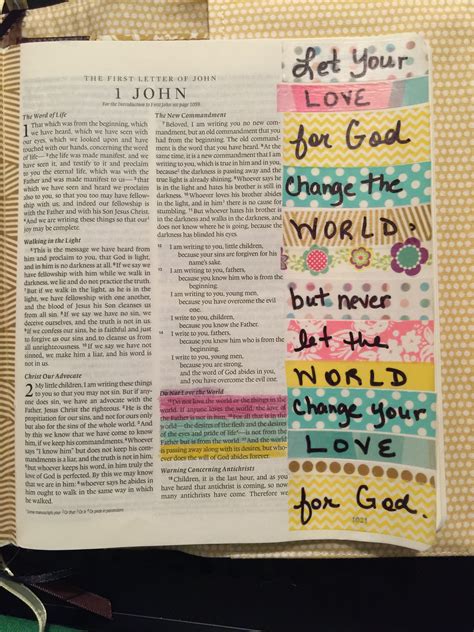 THE FIRST LETTER OF JOHN
1 JOHN
For the Introduction to First John see page 1099.
The Word of Life
1 That which was from the beginning, which
we have heard, which we have seen with
our eyes, which we looked upon and have
touched with our hands, concerning the word
of life— ²the life was made manifest, and we
have seen it, and testify to it and proclaim
to you the eternal life, which was with the
Father and was made manifest to us— ³that
which we have seen and heard we proclaim
also to you, so that you too may have fellow-
ship with us; and indeed our fellowship is
with the Father and with his Son Jesus Christ.
⁴And we are writing these things so that our
joy may be complete.
Walking in the Light
⁵This is the message we have heard from
him and proclaim to you, that God is light,
and in him is no darkness at all. ⁶If we say we
have fellowship with him while we walk in
darkness, we lie and do not practice the truth.
⁷But if we walk in the light, as he is in the
light, we have fellowship with one another,
and the blood of Jesus his Son cleanses us
from all sin. ⁸If we say we have no sin, we
deceive ourselves, and the truth is not in us.
⁹If we confess our sins, he is faithful and just
to forgive us our sins and to cleanse us from
all unrighteousness. ¹⁰If we say we have not
sinned, we make him a liar, and his word is
not in us.
Christ Our Advocate
2 My little children, I am writing these things
to you so that you may not sin. But if any-
one does sin, we have an advocate with the
Father, Jesus Christ the righteous. ²He is the
propitiation for our sins, and not for ours only
but also for the sins of the whole world. ³And
by this we know that we have come to know
him, if we keep his commandments. ⁴Whoever
says "I know him" but does not keep his com-
mandments is a liar, and the truth is not in him,
⁵but whoever keeps his word, in him truly the
love of God is perfected. By this we may know
that we are in him: ⁶whoever says he abides in
him ought to walk in the same way in which
he walked.
The New Commandment
⁷Beloved, I am writing you no new com-
mandment, but an old commandment that you
had from the beginning. The old command-
ment is the word that you have heard. ⁸At the
same time, it is a new commandment that I am
writing to you, which is true in him and in you,
because the darkness is passing away and the
true light is already shining. ⁹Whoever says he
is in the light and hates his brother is still in
darkness. ¹⁰Whoever loves his brother abides
in the light, and in him there is no cause for
stumbling. ¹¹But whoever hates his brother is
in the darkness and walks in the darkness, and
does not know where he is going, because the
darkness has blinded his eyes.
¹² I am writing to you, little children,
because your sins are forgiven for his
name's sake.
¹³ I am writing to you, fathers,
because you know him who is from the
beginning.
I am writing to you, young men,
because you have overcome the evil
one.
I write to you, children,
because you know the Father.
¹⁴ I write to you, fathers,
because you know him who is from the
beginning.
I write to you, young men,
because you are strong,
and the word of God abides in you,
and you have overcome the evil one.
Do Not Love the World
¹⁵Do not love the world or the things in the
world. If anyone loves the world, the love of
the Father is not in him. ¹⁶For all that is in the
world—the desires of the flesh and the desires
of the eyes and pride of life—is not from the
Father but is from the world. ¹⁷And the world
is passing away along with its desires, but who-
ever does the will of God abides forever.
Warning Concerning Antichrists
¹⁸Children, it is the last hour, and as you
have heard that antichrist is coming, so now
many antichrists have come. Therefore we
Let Your
LOVE
for God
Change the
WORLD.
but never
let the
WORLD
change your
LOVE
for God.
1021